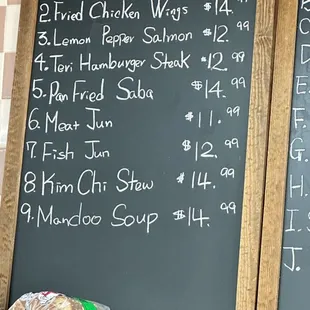 2. Fried Chicken Wings $14.99
3. Lemon Pepper Salmon $12.99
4. Teri Hamburger Steak $12.99
5. Pan Fried Saba $14.99
6. Meat Jun $11.99
7. Fish Jun $12.99
8. Kim Chi Stew $14.99
9. Mandoo Soup $14.99
E.
F.
G.
H.
I.
J.